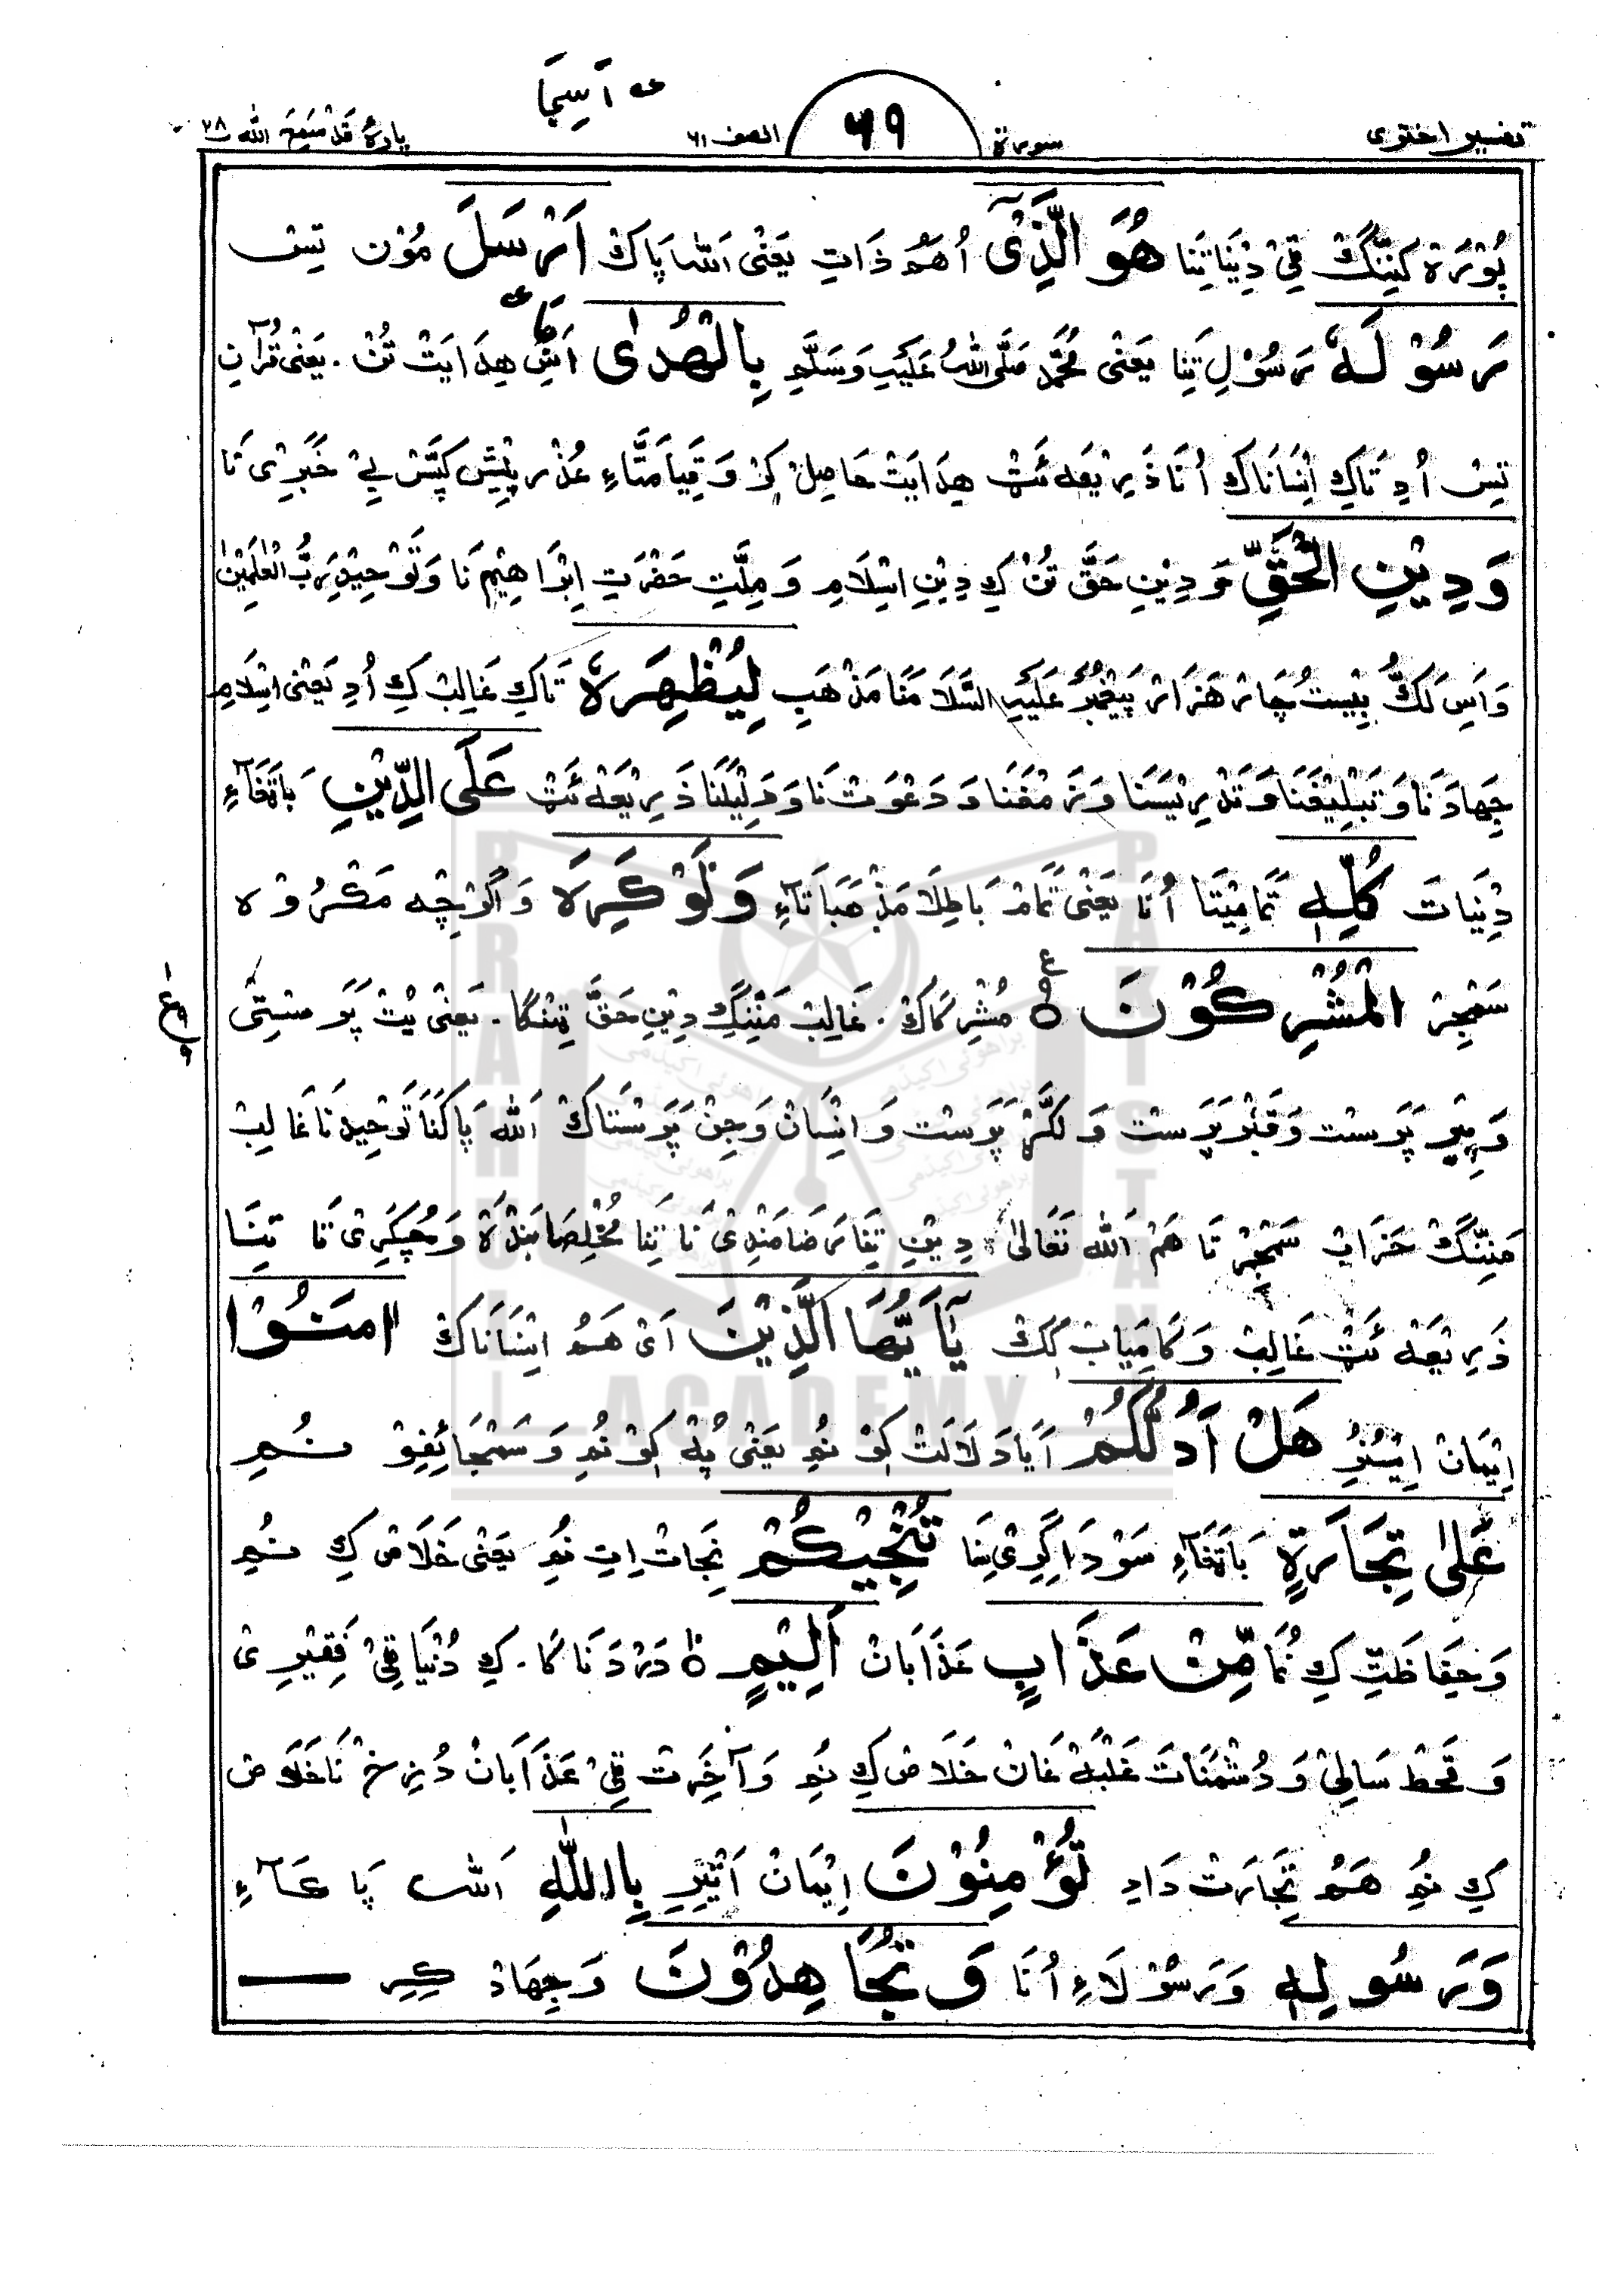 تفسیر اختری سورة ۶۹ الصف ۶۱ پارهٔ قَدْ سَمِعَ اللّٰه ۲۸
پُوْرَہ كَنِّنْگ فِیْ دِنْیَا تِنَا هُوَ الَّذِیْٓ اُ هَمُ ذَاتِ یَعْنٰی اَللّٰه پَاکْ اَرْسَلَ مُوْن تِیس
رَسُوْلَهٗ رَسُوْلِ تِنَا یَعْنٰی مُحَمَّد صَلَّی اللّٰهُ عَلَیْهِ وَسَلَّمِ بِالْهُدٰی هِدَایَتْ تُنْ. یَعْنٰی قُرْآنِ
تِسْ اُدِ تَاکِ اِنْسَانَاکْ اُنَا ذَرِیْعَه ئَٹْ هِدَایَتْ حَاصِلْ کِرْ وَ قِیَامَتَّاءِ عُذْر پِیْش کَپَّسْ بے خَبَرِیْ نَا
وَدِیْنِ الْحَقِّ وَ دِیْنِ حَقَّ تُنْ کِ دِیْنِ اِسْلَامِ وَ مِلَّتِ حَضْرَتِ اِبْرَاهِیْم نَا وَ تَوْحِیْدِ رَبُّ الْعٰلَمِیْنْ
وَاَسِ لَکُّ بِیْسْت چَار هَزَار پَیْغَمْبَر عَلَیْهِ السَّلَامَنَا مَذْهَبِ لِیُظْهِرَهٗ تَاکِ غَالِبْ کِ اُدِ یَعْنٰی اِسْلَامِ
جِهَادَنَا وَ تَبْلِیْغَنَا وَ تَدْرِیْسَنَا وَ دَعْوَتْ نَا وَ دَلِیْلَنَا ذَرِیْعَه ئَٹْ عَلَی الدِّیْنِ بَاتَغَآءِ
دِنْیَاتَ كُلِّهٖ تَمَامِیْتَا اُنَا یَعْنٰی تَمَامْ بَاطِلَا مَذْهَبَاتَآءِ وَلَوْ كَرِهَ وَ اَگَرْچِه مَكْرُوْہ
سَمْجِرْ الْمُشْرِكُوْنَ ۹ مُشْرِکَاکْ. غَالِبْ مَنِّنْگ دِیْنِ حَقَّ تِنْگا. یَعْنٰی بُتْ پَرَسْتِی
وَ پِیْر پَرَسْت وَ قَبْر پَرَسْت وَ لَکَّڑ پَرَسْت وَ اِنْسَانْ وَ جِنْ پَرَسْتَاکْ اَللّٰه پَاکَنَا تَوْحِیْدنَا غَالِبْ
مَنِّنْگ خَرَابْ سَمْجِرْ تَا هَمْ اَللّٰه تَعَالٰی دِیْنِ تِنَا رَضَامَنْدِیْ نَا تِنَا مُخْلِصَا بَنْدَہ وَ تِنَا
ذَرِیْعَه ئَٹْ غَالِبْ وَ کَامِیَابْ کِکْ یٰٓاَیُّهَا الَّذِیْنَ اَیْ هَمُ اِنْسَانَاکْ اٰمَنُوْا
اِیْمَانْ اِیْسُنُرْ هَلْ اَدُلُّكُمْ اٰیَا دَلَالَتْ کِوْ نُمِ یَعْنٰی پِه کِوْ نُمِ وَ سَمْجَائِفِوْ نُمِ
عَلٰی تِجَارَةٍ بَاتَغَآءِ سَوْدَاگِرِیْ سِنَا تُنْجِیْكُمْ نِجَاتْ اِتِ نُمِ یَعْنٰی خَلَاصْ کِ نُمِ
وَ حِفَاظَتِّ کِ نُمَا مِّنْ عَذَابٍ عَذَابَانْ اَلِیْمٍ دَرْدَنَاکَا. کِ دُنْیَا فِیْ فَقِیْرِیْ
وَ قَحْط سَالِیْ وَ دُشْمَنَاتَ غَلْبَه غَانْ خَلَاصْ کِ نُمِ وَ آخِرَت فِیْ عَذَابَانْ دُزِخْ نَا خَلَاصْ
کِ نُمِ هَمُ تِجَارَتْ دَادِ تُؤْمِنُوْنَ اِیْمَانْ اَتِّرِ بِاللّٰهِ اَللّٰه پَاکَآءِ
وَرَسُوْلِهٖ وَ رَسُوْلَاءِ اُنَا وَ تُجَاهِدُوْنَ وَ جِهَادْ کِرِ
BRAHUI ACADEMY PAKISTAN